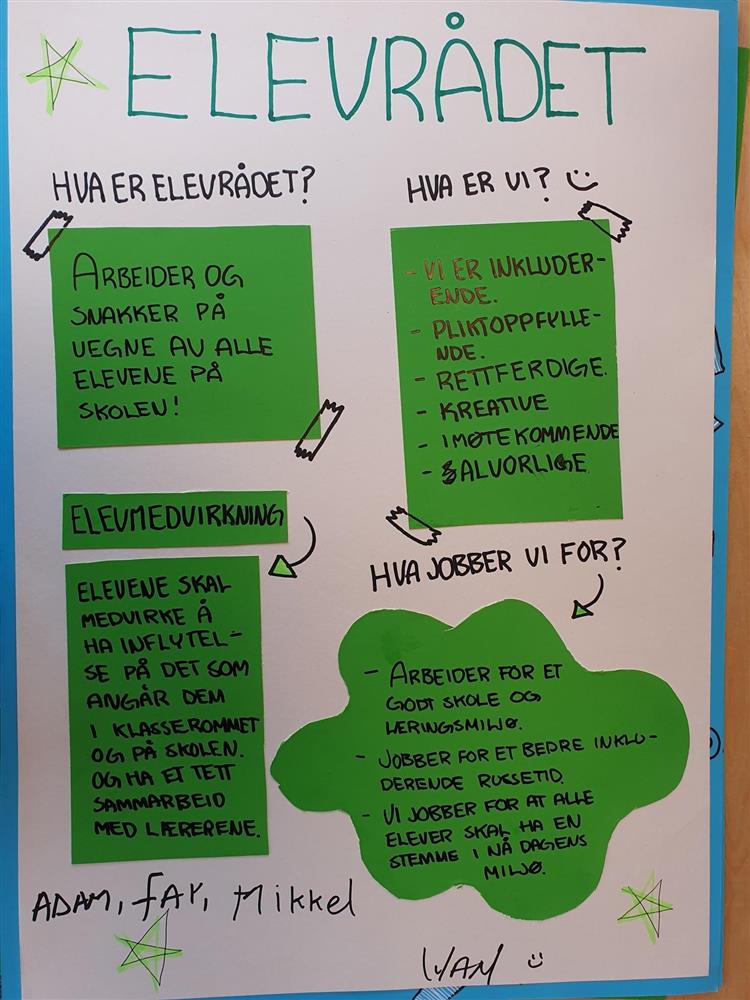 ELEVRÅDET
HVA ER ELEVRÅDET?
ARBEIDER OG
SNAKKER PÅ
VEGNE AV ALLE
ELEVENE PÅ
SKOLEN!
HVA ER VI? :)
- VI ER INKLUDER-
ENDE.
- PLIKTOPPFYLLE-
NDE.
- RETTFERDIGE.
- KREATIVE
- IMØTEKOMMENDE
- SALVORLIGE
ELEVMEDVIRKNING
ELEVENE SKAL
MEDVIRKE Å
HA INFLYTEL-
SE PÅ DET SOM
ANGÅR DEM
I KLASSEROMMET
OG PÅ SKOLEN.
OG HA ET TETT
SAMMARBEID
MED LÆRERENE.
HVA JOBBER VI FOR?
- ARBEIDER FOR ET
GODT SKOLE OG
LÆRINGSMILJØ.
- JOBBER FOR ET BEDRE INKLU-
DERENDE RUSSETID.
- VI JOBBER FOR AT ALLE
ELEVER SKAL HA EN
STEMME I NÅ DAGENS
MILJØ.
ADAM, FAY, Mikkel